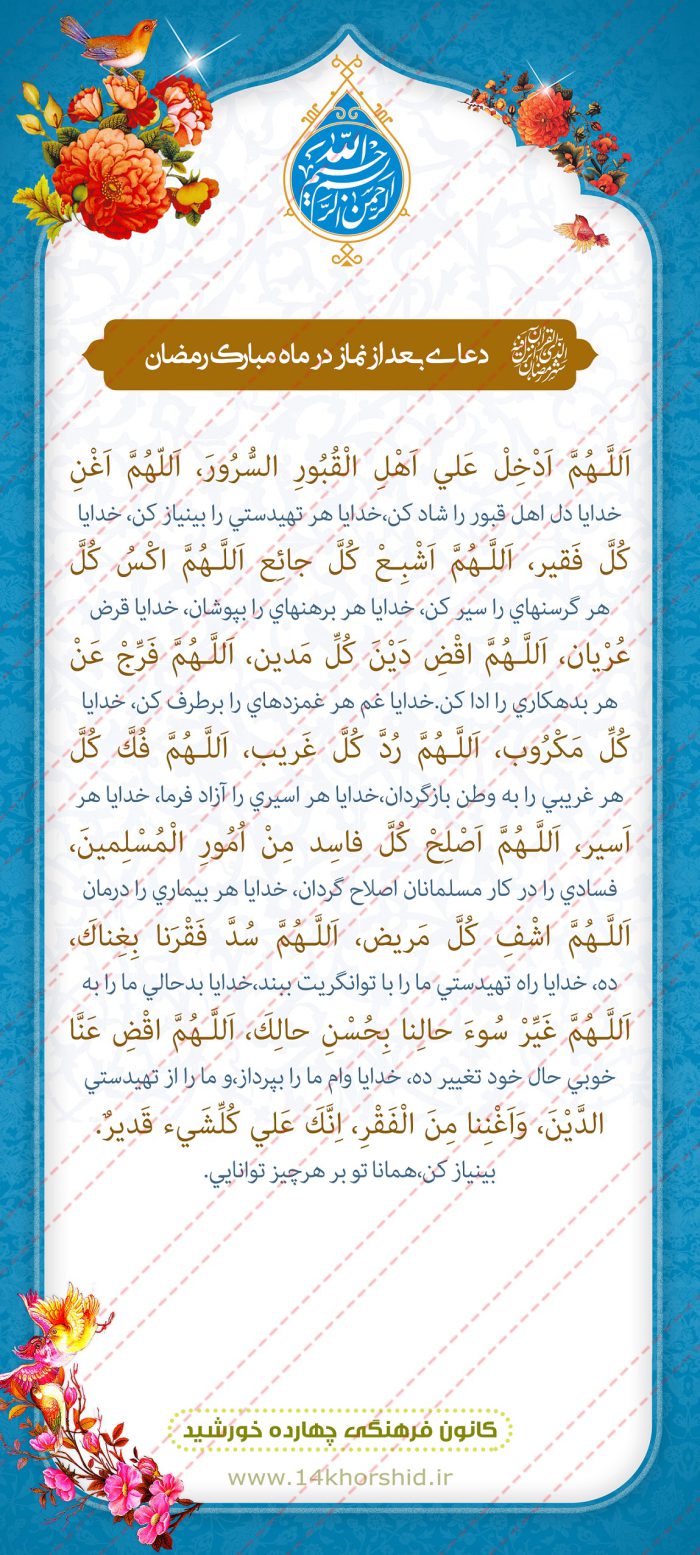 بسم الله الرحمن الرحیم
شهر رمضان الذی انزل فیه القرآن
دعای بعد از نماز در ماه مبارک رمضان
اَللَّـهُمَّ اَدْخِلْ عَلي اَهْلِ الْقُبُورِ السُّرُورَ، اَللّهُمَّ اَغْنِ
خدایا دل اهل قبور را شاد کن،خدایا هر تهیدستي را بینیاز کن، خدایا
كُلَّ فَقير، اَللَّـهُمَّ اَشْبِـعْ كُلَّ جائِع اَللَّـهُمَّ اكْسُ كُلَّ
هر گرسنهاي را سیر کن، خدایا هر برهنهاي را بپوشان، خدایا قرض
عُرْيان، اَللَّـهُمَّ اقْضِ دَيْنَ كُلِّ مَدين، اَللَّـهُمَّ فَرِّجْ عَنْ
هر بدهکاري را ادا کن.خدایا غم هر غمزدهاي را برطرف کن، خدایا
كُلِّ مَكْرُوب، اَللَّـهُمَّ رُدَّ كُلَّ غَريب، اَللَّـهُمَّ فُكَّ كُلَّ
هر غریبي را به وطن بازگردان،خدایا هر اسیري را آزاد فرما، خدایا هر
اَسير، اَللَّـهُمَّ اَصْلِحْ كُلَّ فاسِد مِنْ اُمُورِ الْمُسْلِمينَ،
فسادي را در کار مسلمانان اصلاح گردان، خدایا هر بیماري را درمان
اَللَّـهُمَّ اشْفِ كُلَّ مَريض، اَللَّـهُمَّ سُدَّ فَقْرَنا بِغِناكَ،
ده، خدایا راه تهیدستي ما را با توانگریت ببند،خدایا بدحالي ما را به
اَللَّـهُمَّ غَيِّرْ سُوءَ حالِنا بِحُسْنِ حالِكَ، اَللَّـهُمَّ اقْضِ عَنَّا
خوبي حال خود تغییر ده، خدایا وام ما را بپرداز،و ما را از تهیدستي
الدَّيْنَ، وَاَغْنِنا مِنَ الْفَقْرِ، اِنَّكَ عَلي كُلِّشَيء قَديرٌ.
بینیاز کن،همانا تو بر هرچیز توانایي.
کانون فرهنگی چهارده خورشید
www.14khorshid.ir